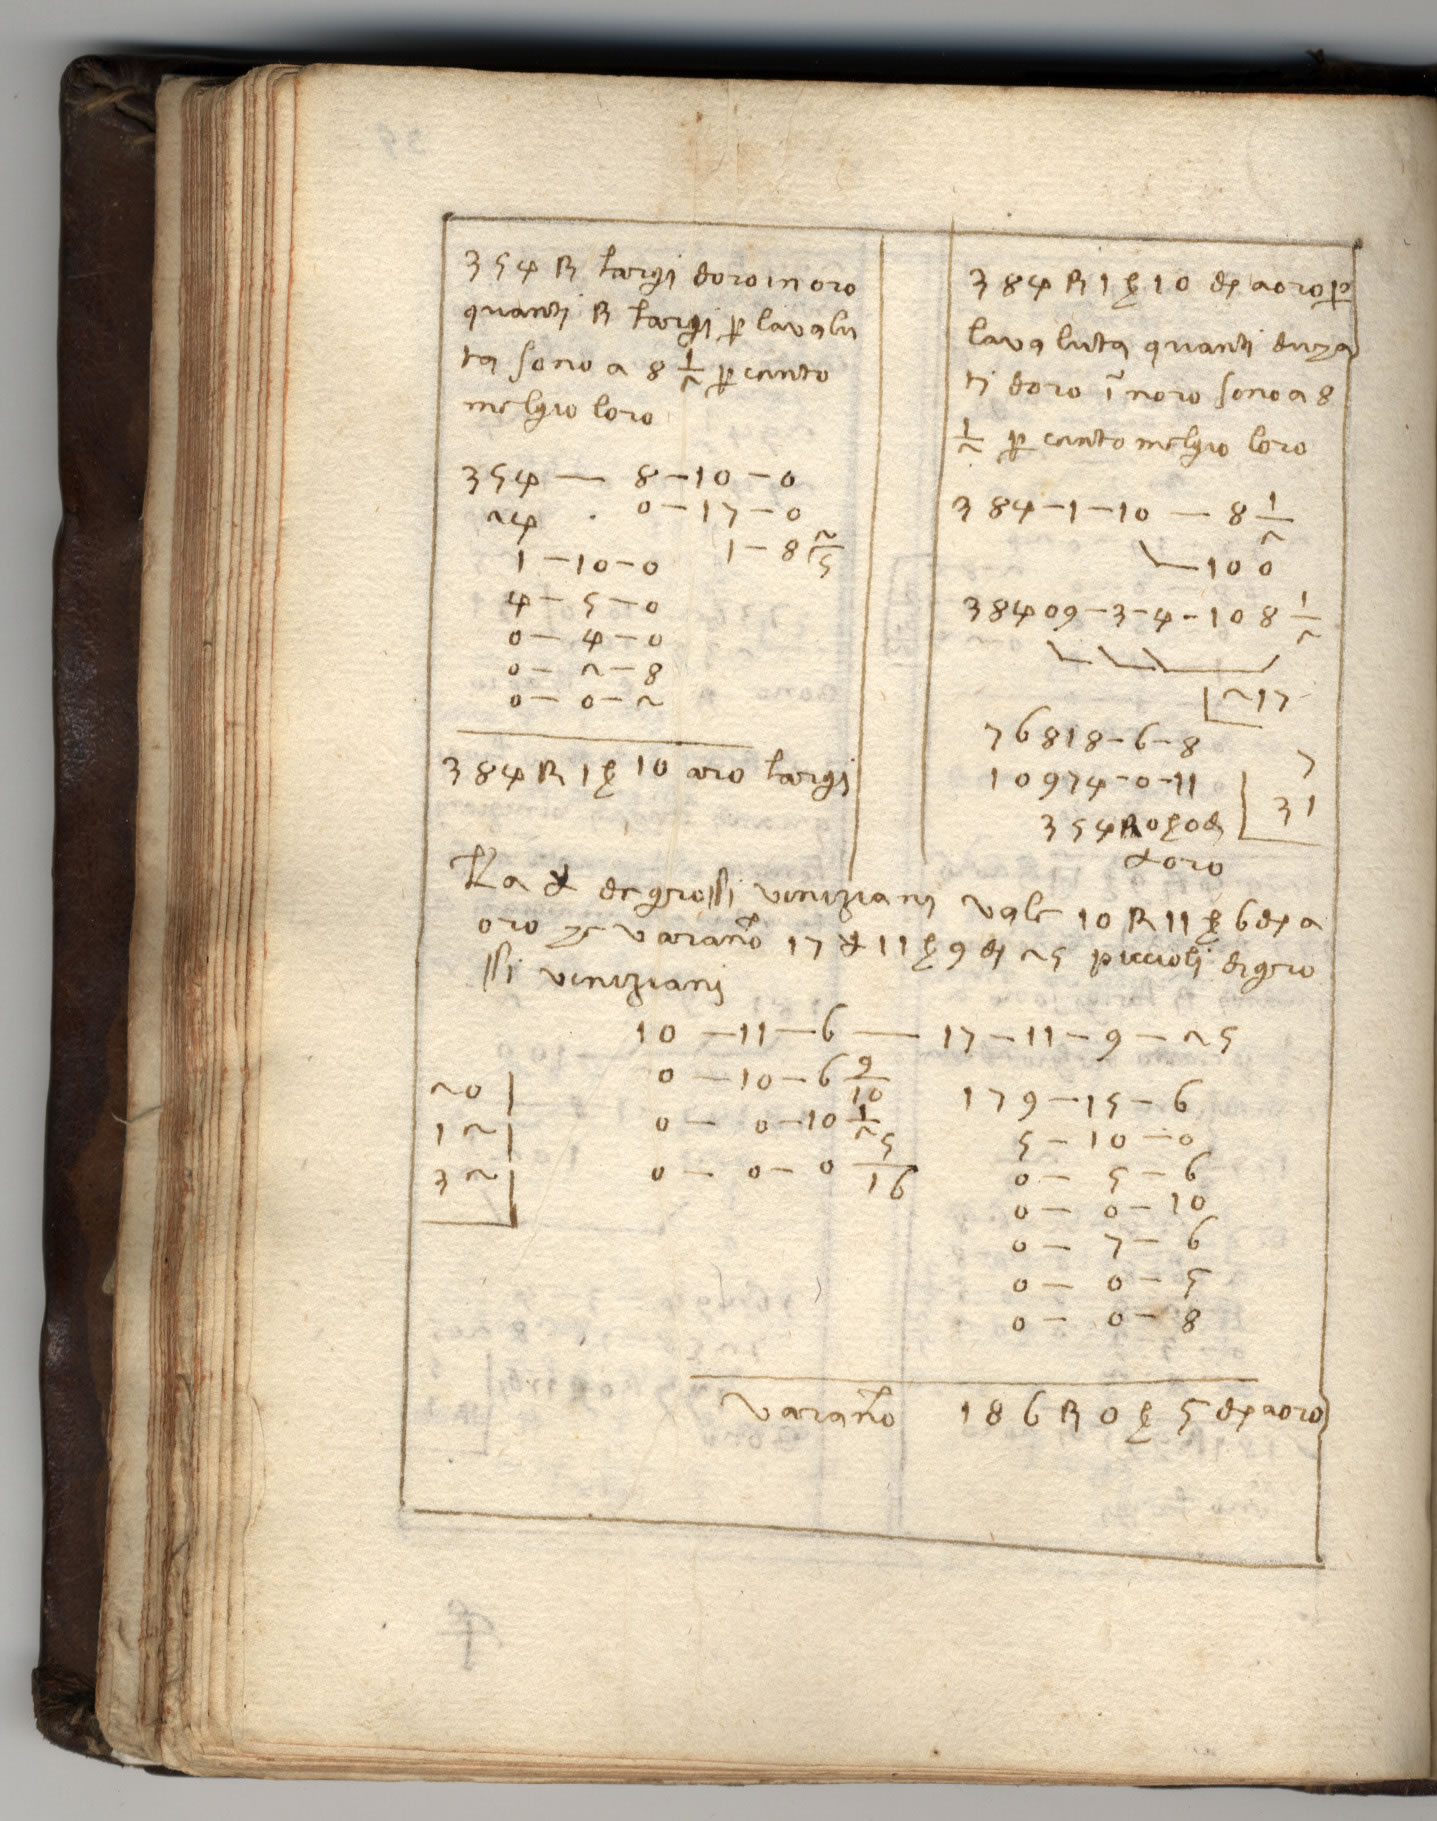 354 ₶ largi doro in oro
quanti ₶ largi ꝑ lavalu
ta sono a 8 1/2 ꝑ cento
melgio loro
354 — 8–10–0
24 . 0–17–0
1–10–0 1–8 2/5
4–5–0
0–4–0
0–2–8
0–0–2
384 ₶ 1 ẞ 10 aro largi
384 ₶ 1 ẞ 10 dj aoro ꝑ
lava luta quanti duza
ti doro ĩ noro sono a 8
1/2 ꝑ cento melgio loro
384–1–10 — 8 1/2
100
38409–3–4–108 1/2
217
76818–6–8
10974–0–11 7
354 ₶ 0 ẞ 0 d 31
doro
La đ de grossi viniziani vale 10 ₶ 11 ẞ 6 dj a
oro ze varano 17 đ 11 ẞ 9 dj 25 piccioli di gro
ssi viniziani
10–11–6 — 17–11–9–25
20 0–10–6 9/10 179–15–6
12 0–0–10 1/2 5–10–0
32 0–0–0 5/16 0–5–6
0–0–10
0–7–6
0–0–5
0–0–8
Varano 186 ₶ 0 ẞ 5 dj aoro